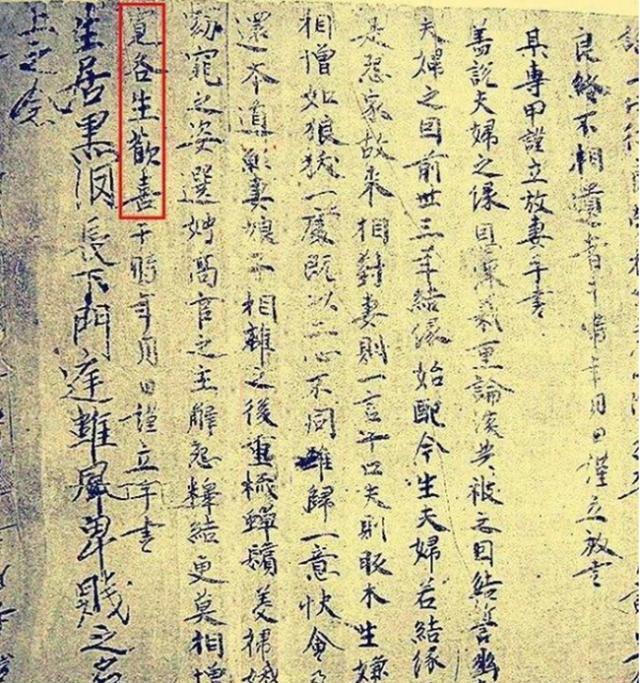 良終不相遺者于時年月日謹立放書
某專甲謹立放妻手書
盖說夫婦之緣恩深義重論談共被之因結誓幽
夫婦之因前世三年結緣始配今生夫婦若結緣
是怨家故來相對妻則一言十口夫則販木生嫌
相憎如狼一處既以二心不同難歸一意快會
還本道願妻娘子相離之後重梳蟬鬢美掃娥
窈窕之姿選娉高官之主解怨釋結更莫相憎
寬各生歡喜于時年月日謹立手書
生居黑長下門庭離卑賤之名
上之念